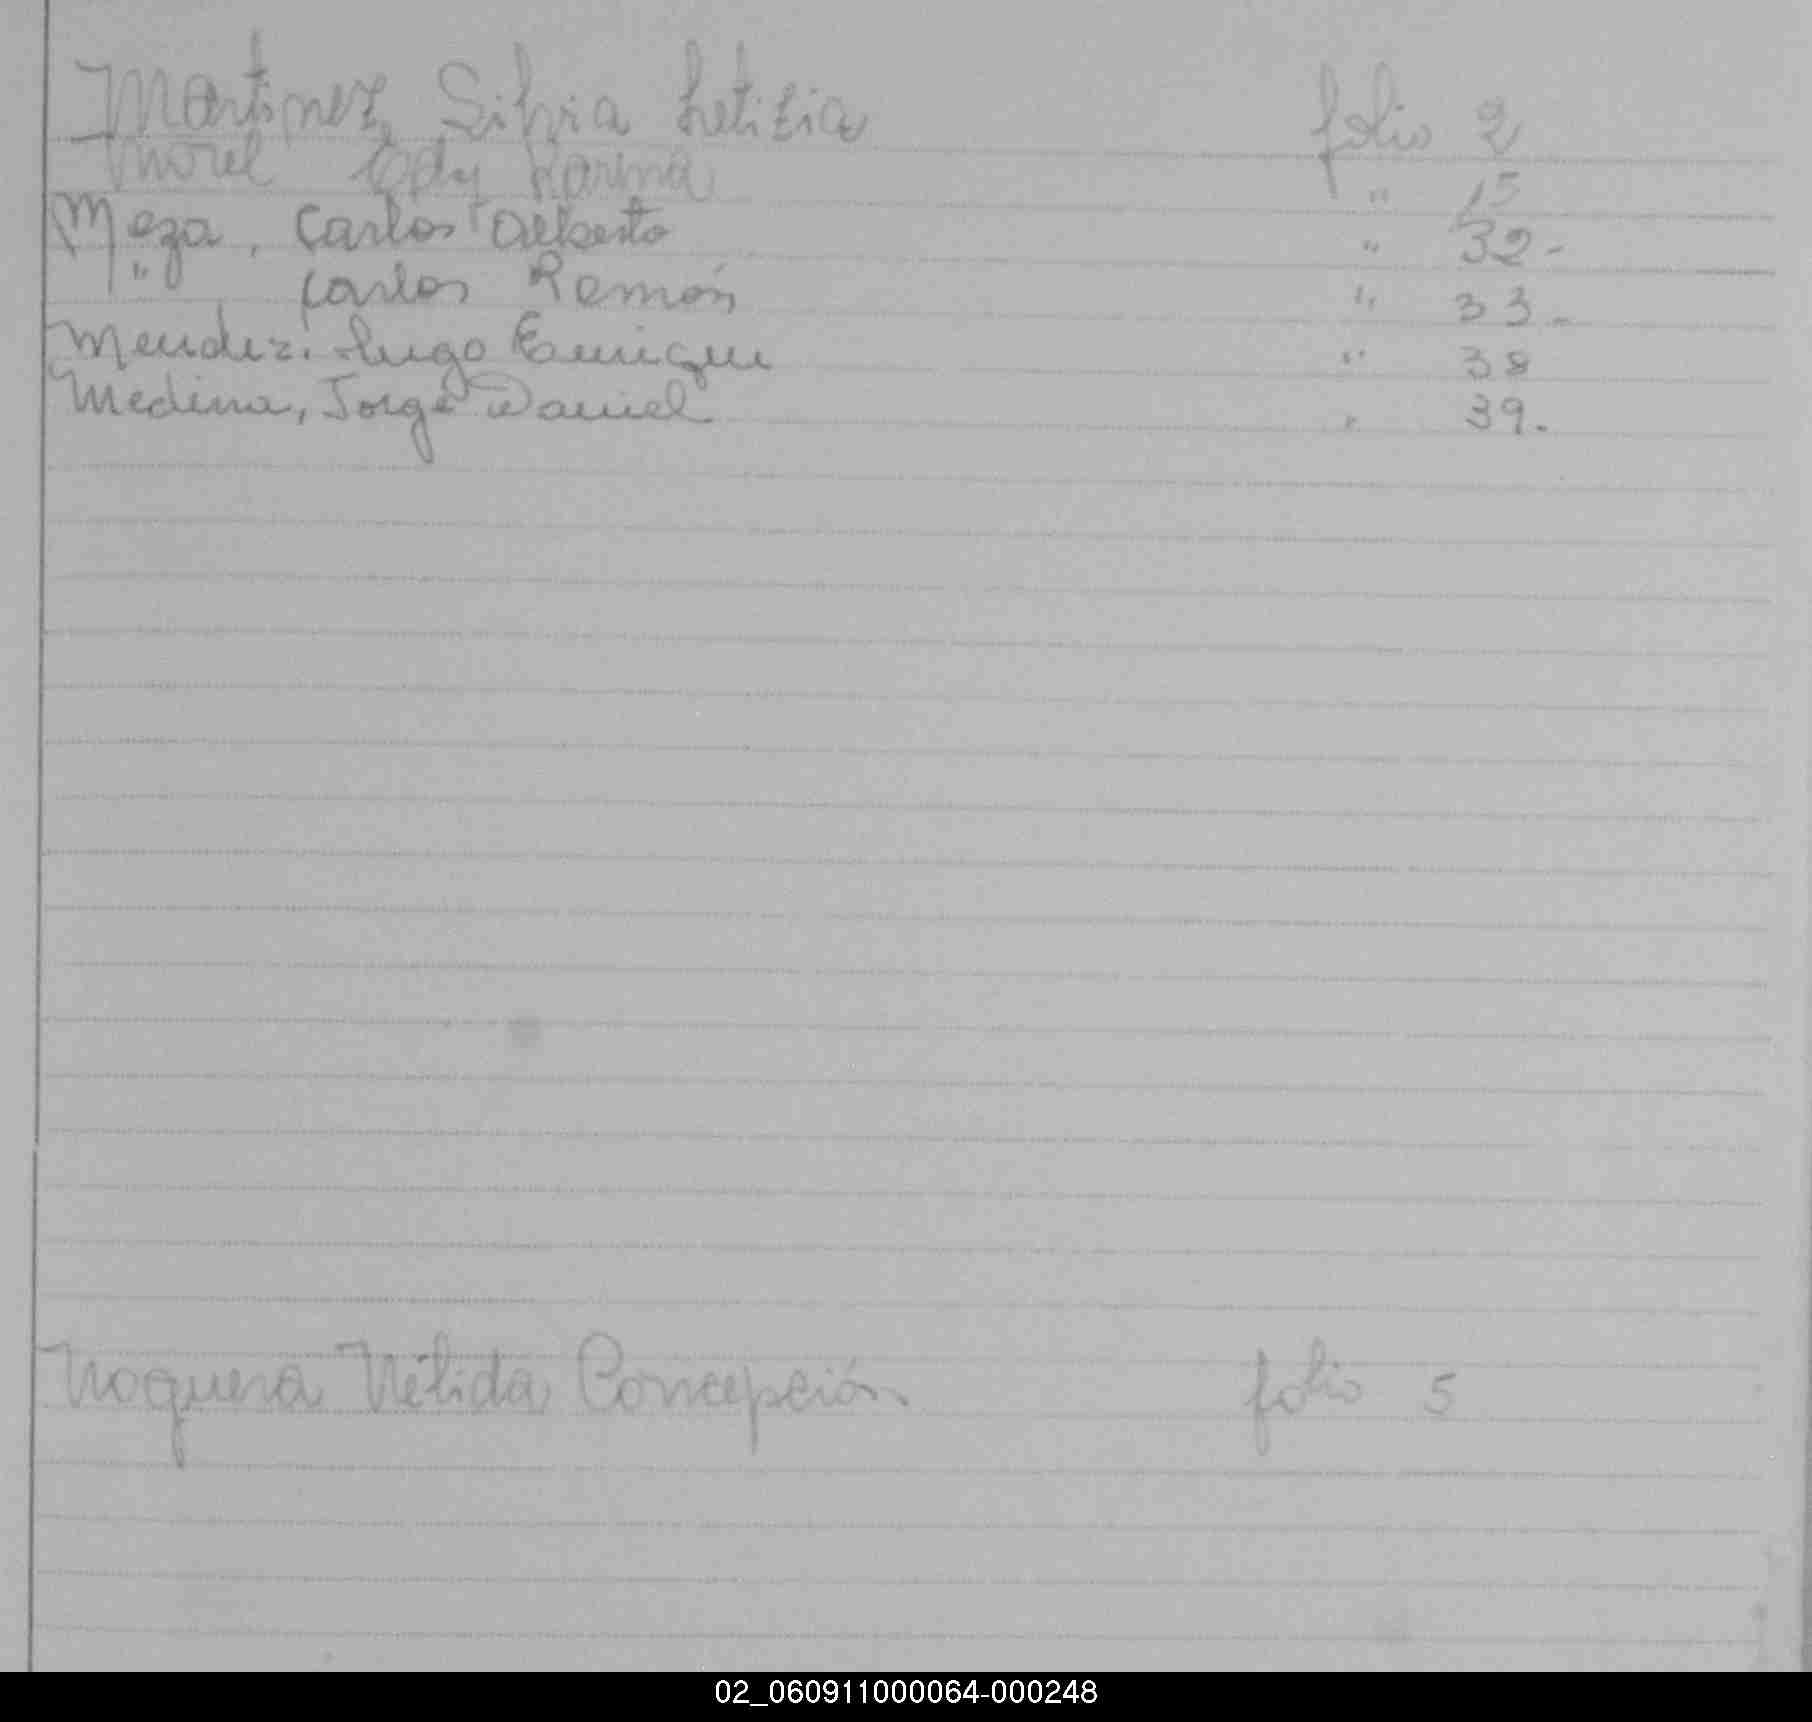 Martinez, Silvia Letizia folio 2
Morel Edy Karina " 15
Meza, Carlos Alberto " 32-
" Carlos Ramón " 33-
Mendez. Hugo Enrique " 38
Medina, Jorge Daniel " 39.
Noguera Nélida Concepción folio 5
02_060911000064-000248